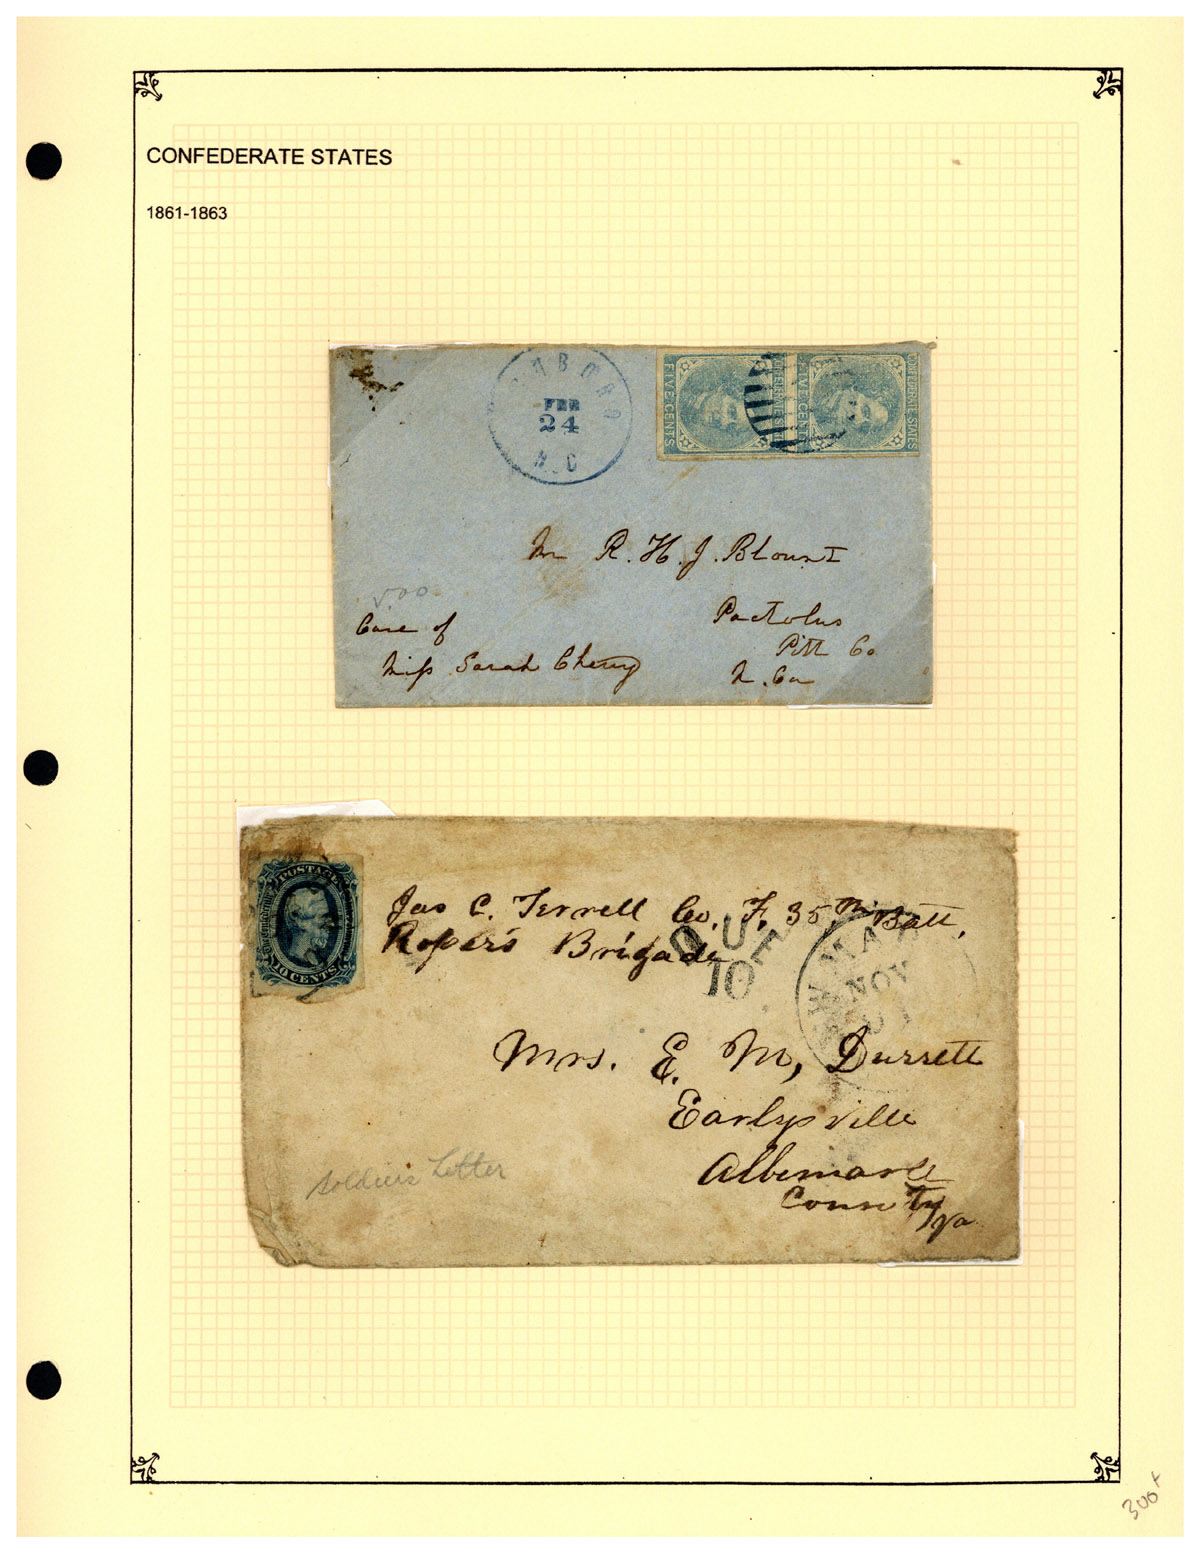 CONFEDERATE STATES
1861-1863
FEB
24
N.C
FIVE CENTS
FIVE CENTS
Mr R. H. J. Blount
500
Care of
Miss Sarah Cherry
Pactolus
Pitt Co
N. Ca
POSTAGE
10 CENTS
Jas C. Terrell Co. F, 35th Batt,
Roper's Brigade
DUE
10
NOV
Mrs. E. M, Durrett
Earlysville
Albemarle
County
Va
Soldiers Letter
300+